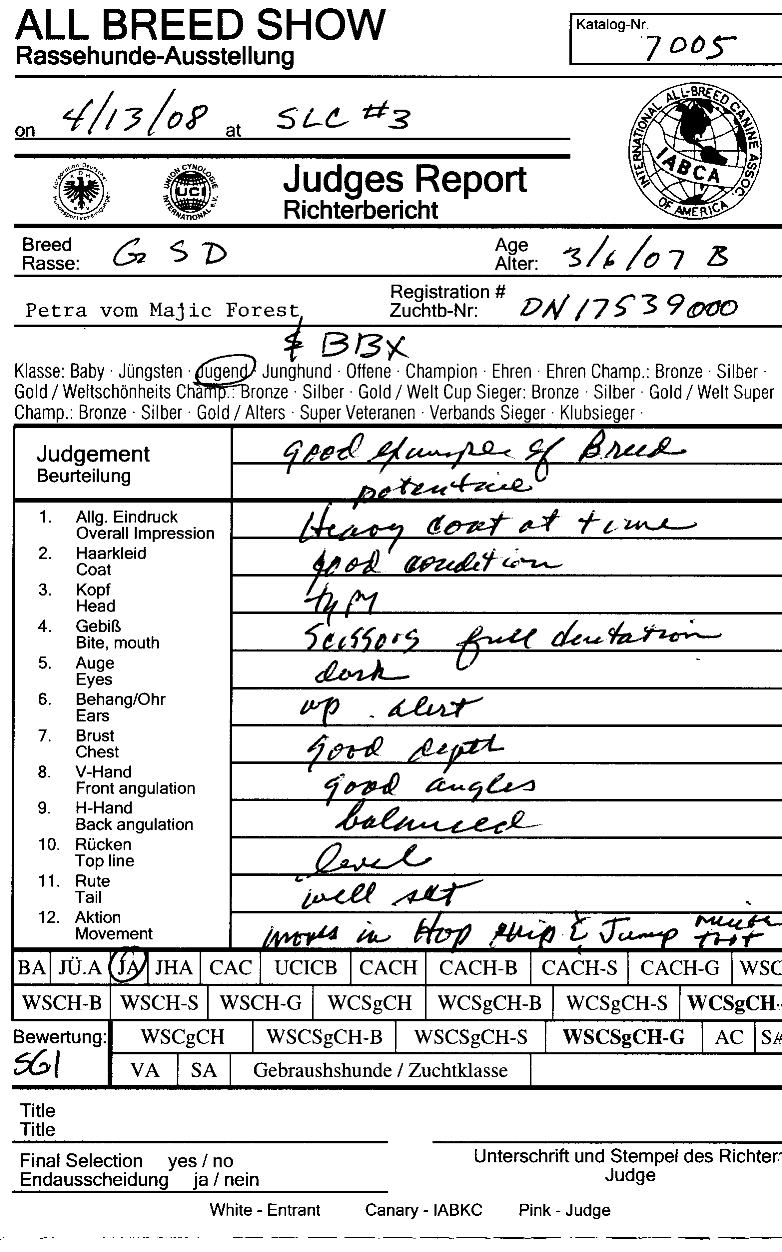 ALL BREED SHOW
Rassehunde-Ausstellung
Katalog-Nr.
7005
on 4/13/08 at SLC #3
INTERNATIONAL ALL-BREED CANINE ASSOC. OF AMERICA
IABCA
UNION CYNOLOGIE INTERNATIONAL e.V.
UCI
Judges Report
Richterbericht
Breed
Rasse: GSD
Age
Alter: 3/6/07 B
Petra vom Majic Forest
Registration #
Zuchtb-Nr: DN17539000
& BBX
Klasse: Baby · Jüngsten · Jugend · Junghund · Offene · Champion · Ehren · Ehren Champ.: Bronze · Silber ·
Gold / Weltschönheits Champ.: Bronze · Silber · Gold / Welt Cup Sieger: Bronze · Silber · Gold / Welt Super
Champ.: Bronze · Silber · Gold / Alters · Super Veteranen · Verbands Sieger · Klubsieger ·
Judgement
Beurteilung
good example of Breed
potential
1. Allg. Eindruck
Overall Impression
Heavy coat at time
2. Haarkleid
Coat
good condition
3. Kopf
Head
4. Gebiß
Bite, mouth
Scissors full dentation
5. Auge
Eyes
dark
6. Behang/Ohr
Ears
up . alert
7. Brust
Chest
good depth
8. V-Hand
Front angulation
good angles
9. H-Hand
Back angulation
balanced
10. Rücken
Top line
level
11. Rute
Tail
well set
12. Aktion
Movement
moves in Hop skip & Jump trot
BA JÜ.A JA JHA CAC UCICB CACH CACH-B CACH-S CACH-G WSC
WSCH-B WSCH-S WSCH-G WCSgCH WCSgCH-B WCSgCH-S WCSgCH-
Bewertung: WSCgCH WSCSgCH-B WSCSgCH-S WSCSgCH-G AC SA
SG1 VA SA Gebraushshunde / Zuchtklasse
Title
Title
Final Selection yes / no
Endausscheidung ja / nein
Unterschrift und Stempel des Richter
Judge
White - Entrant Canary - IABKC Pink - Judge